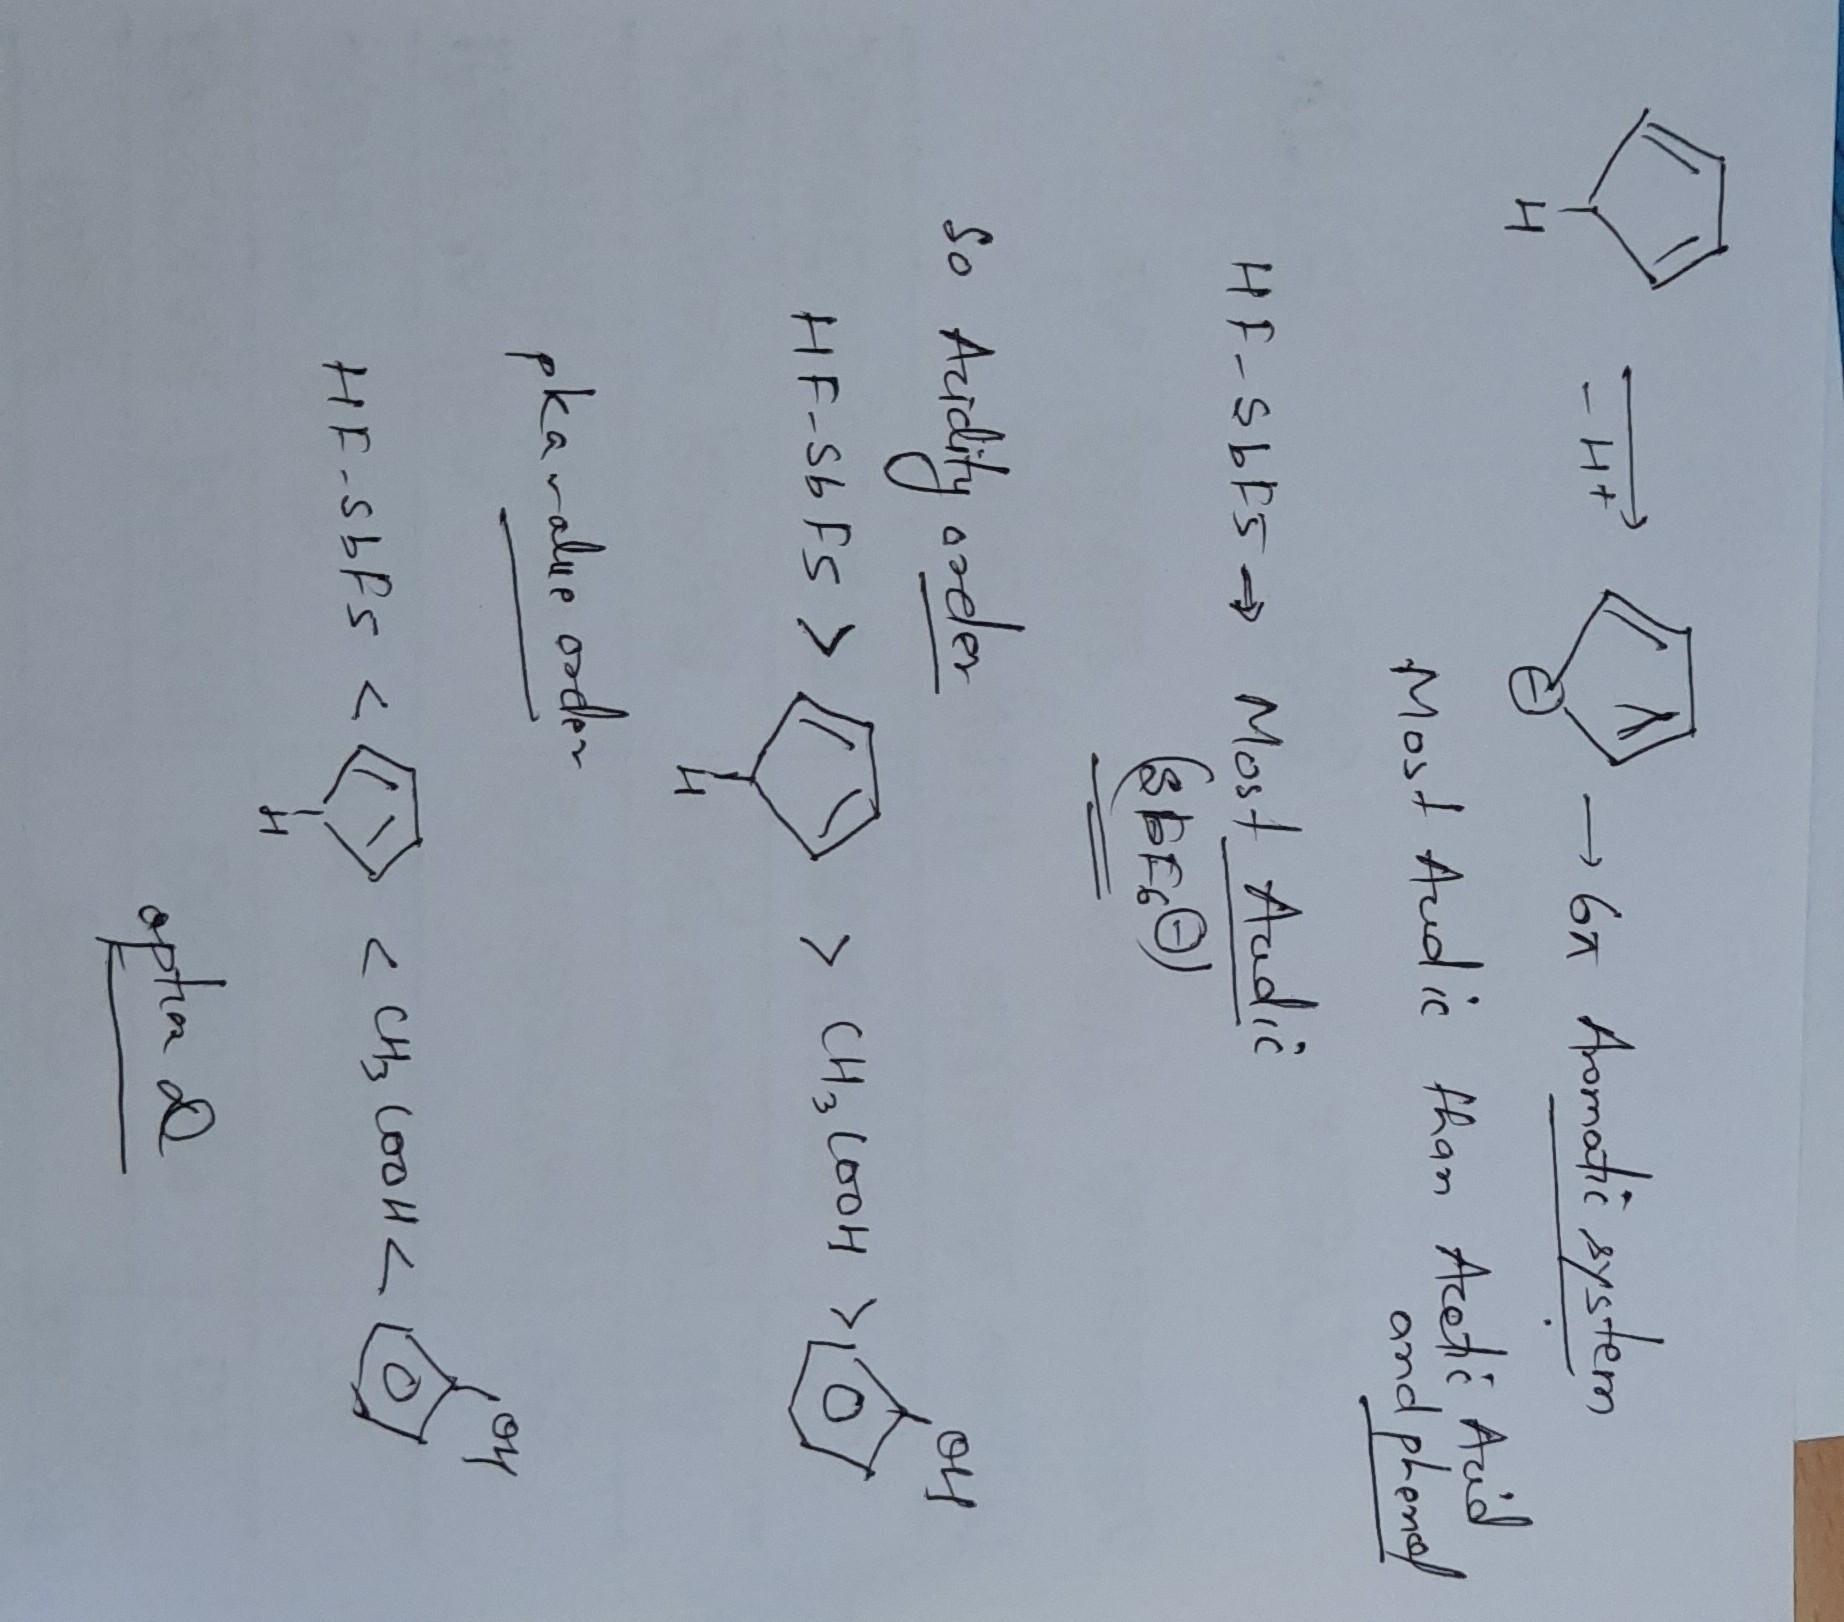 H - H+ ⊖ → 6π Aromatic system
Most Acidic than Acetic Acid
and phenol
HF-SbF5 → Most Acidic
(SbF6⊖)
So Acidity order
HF-SbF5 > H > CH3COOH > OH
pka value order
HF-SbF5 < H < CH3COOH < OH
option